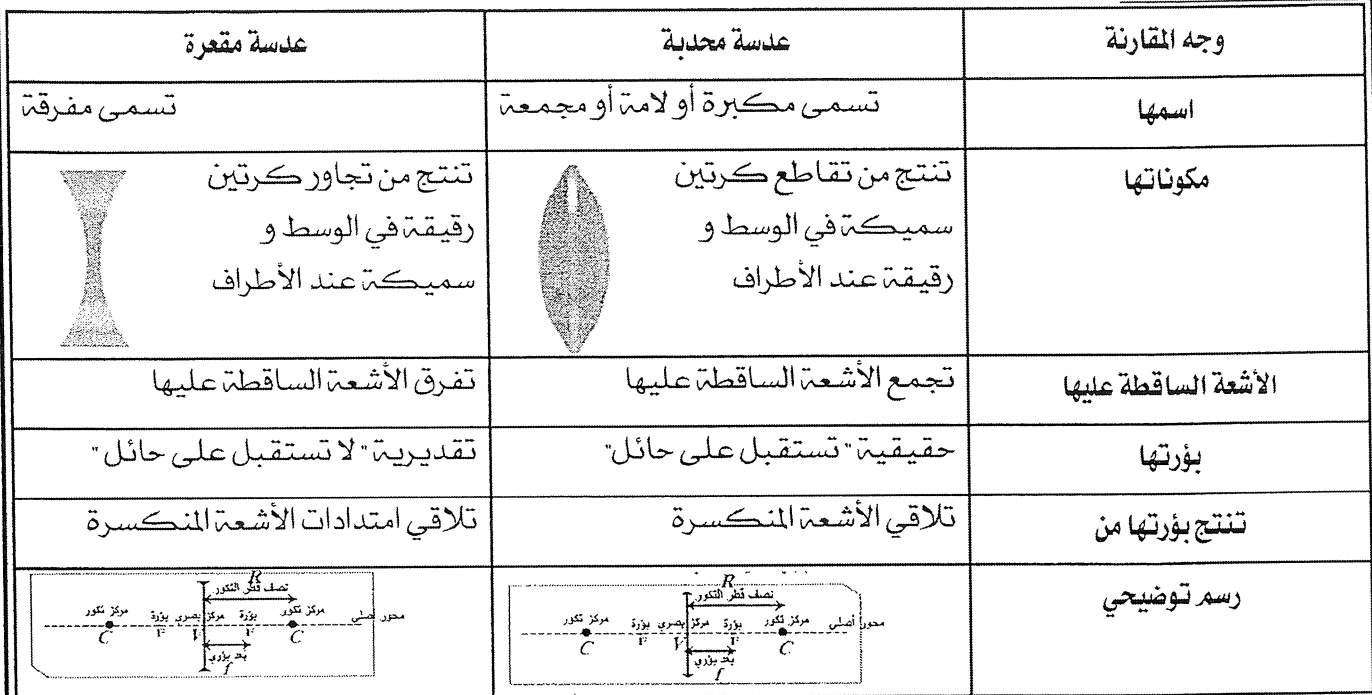 وجه المقارنة
عدسة محدبة
عدسة مقعرة
اسمها
تسمى مكبرة أو لامة أو مجمعة
تسمى مفرقة
مكوناتها
تنتج من تقاطع كرتين
سميكة في الوسط و
رقيقة عند الأطراف
تنتج من تجاور كرتين
رقيقة في الوسط و
سميكة عند الأطراف
الأشعة الساقطة عليها
تجمع الأشعة الساقطة عليها
تفرق الأشعة الساقطة عليها
بؤرتها
حقيقية "تستقبل على حائل"
تقديرية "لا تستقبل على حائل"
تنتج بؤرتها من
تلاقي الأشعة المنكسرة
تلاقي امتدادات الأشعة المنكسرة
رسم توضيحي
R
نصف قطر التكور
محور أصلي
مركز تكور
بؤرة
مركز بصري
بؤرة
مركز تكور
C
F
V
F
C
بعد بؤري
f
R
نصف قطر التكور
محور أصلي
مركز تكور
بؤرة
مركز بصري
بؤرة
مركز تكور
C
F
V
F
C
بعد بؤري
f